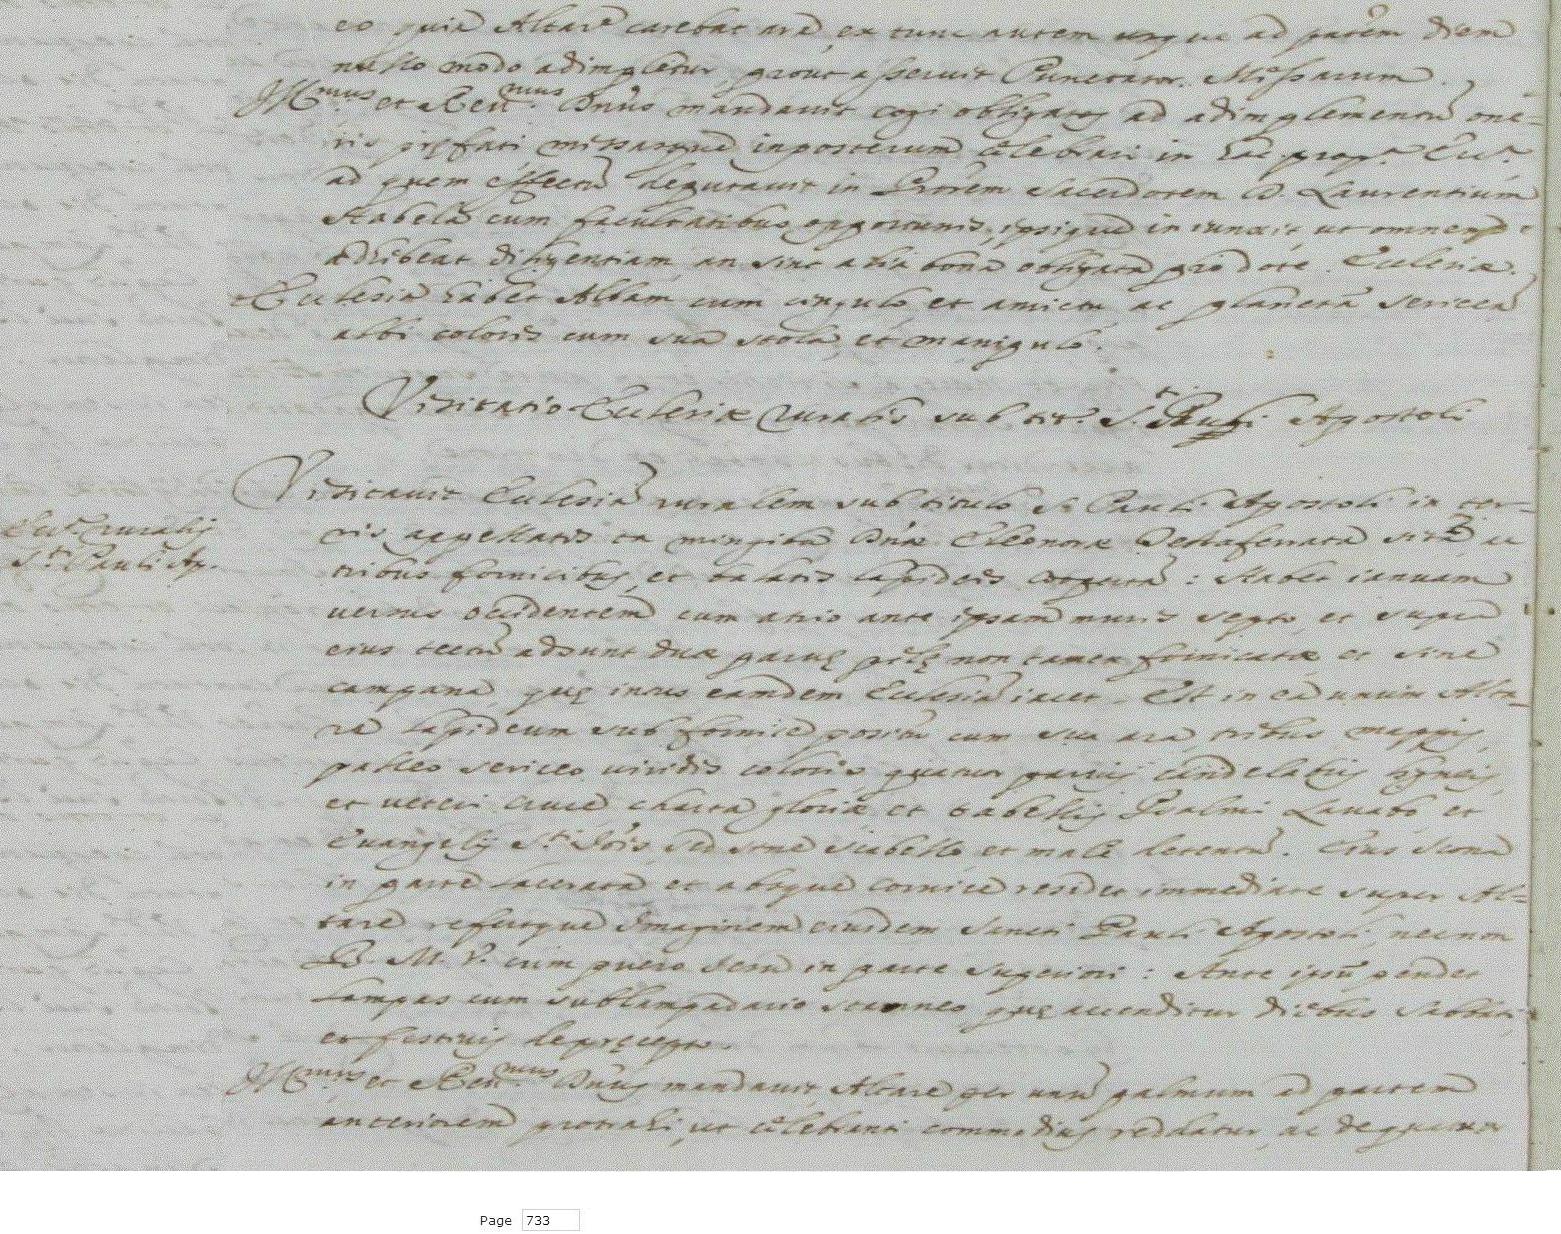 eo quia Altare carebat ara, ex tunc autem usque ad putem diem
nullo modo adimpletur, prout asseruit Punctator Missarum.
Ill.mus et Reu.mus Dnus mandauit cogi obligatos ad adimplementu one=
ris pręfati missasque inposterum celebrari in hac prop.a Eccl.a
ad quem effectu deputauit in Prorem Sacerdotem D. Laurentium
Habela cum facultatibus opportunis, ipsique iniunxit, ut omnem
adhibeat diligentiam, an sint alia bona obligata pro dote Ecclesiæ.
Ecclesia habet Albam cum cingulo, et amictu, ac planeta sericea
albi coloris cum sua stola, et manipulo.
Visitatio Ecclesiæ ruralis sub tit. S.ti Pauli Apostoli
Visitauit Ecclesia ruralem sub titulo S. Pauli Apostoli in ter=
Eccl.a ruralis
S.ti Pauli Ap.
ris appellatis ta Dnæ Eleonoræ Testaferrata sita ac
tribus fornicibus, et balatis lapideis : Habet ianuam
uersus occidentem cum atrio ante ipsam muris septo, et supra
eius tectu adsunt duæ paruę pilę non tamen fornicatæ et sine
campana, quę intus eamdem Ecclesia iacet. Est in ea unum Alta=
re lapideum sub fornice positu cum sua ara, tribus mappis,
palleo sericeo uiridis coloris, quatuor paruis candelabris ligneis,
et ueteri cruce charta gloriæ et tabellis Psalmi Lauabo et
Euangelij S.ti Iois, sed sine scabello, et male detenta. Eius Icona
in parte lacerata et absque cornice residet immediate super Al=
tare refertque Imaginem eiusdem Sancti Pauli Apostoli, necnon
B. M. V. cum puero Iesu in parte superiori : Ante ipsu pendet
Lampas cum sublampadario stamneo quę accenditur diebus Sabbati,
et festiuis de pręcepto.
Ill.mus et Reu.mus Dnus mandauit, Altare per unu palmum ad partem
anteriorem protrahi, ut celebranti commodius reddatur, ac
Page 733